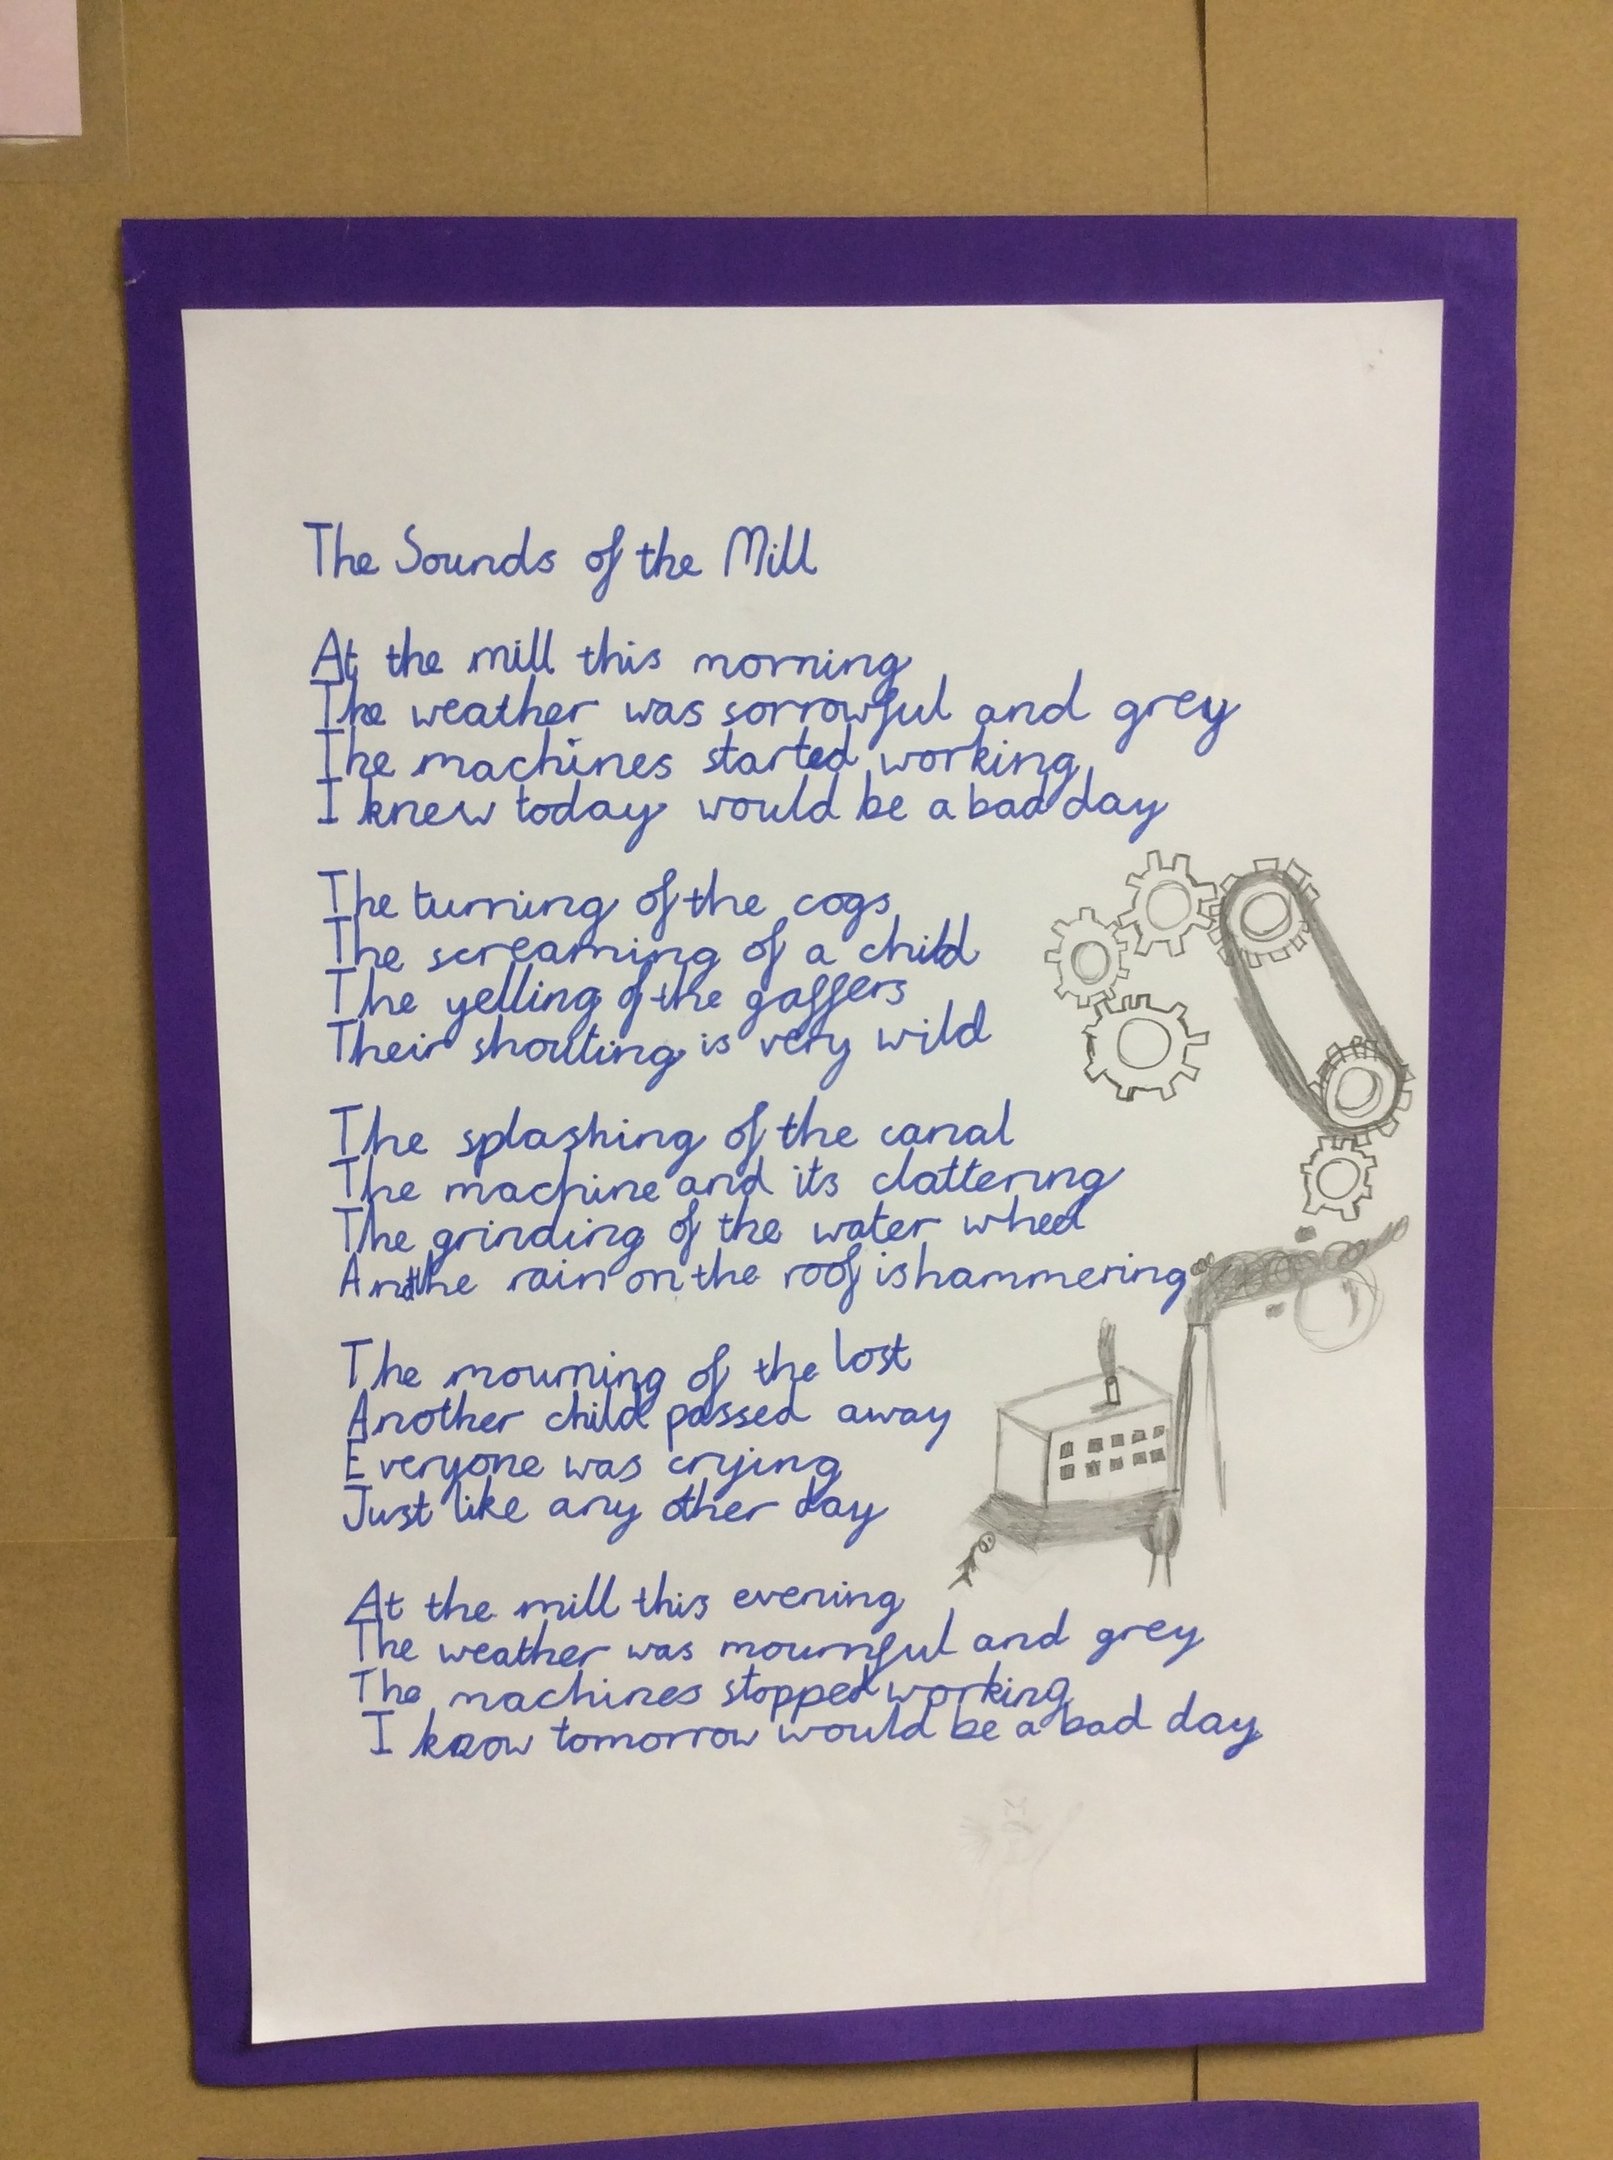 The Sounds of the Mill
At the mill this morning
The weather was sorrowful and grey
The machines started working
I knew today would be a bad day
The turning of the cogs
The screaming of a child
The yelling of the gaffers
Their shouting is very wild
The splashing of the canal
The machine and its clattering
The grinding of the water wheel
And the rain on the roof is hammering
The mourning of the lost
Another child passed away
Everyone was crying
Just like any other day
At the mill this evening
The weather was mournful and grey
The machines stopped working
I know tomorrow would be a bad day